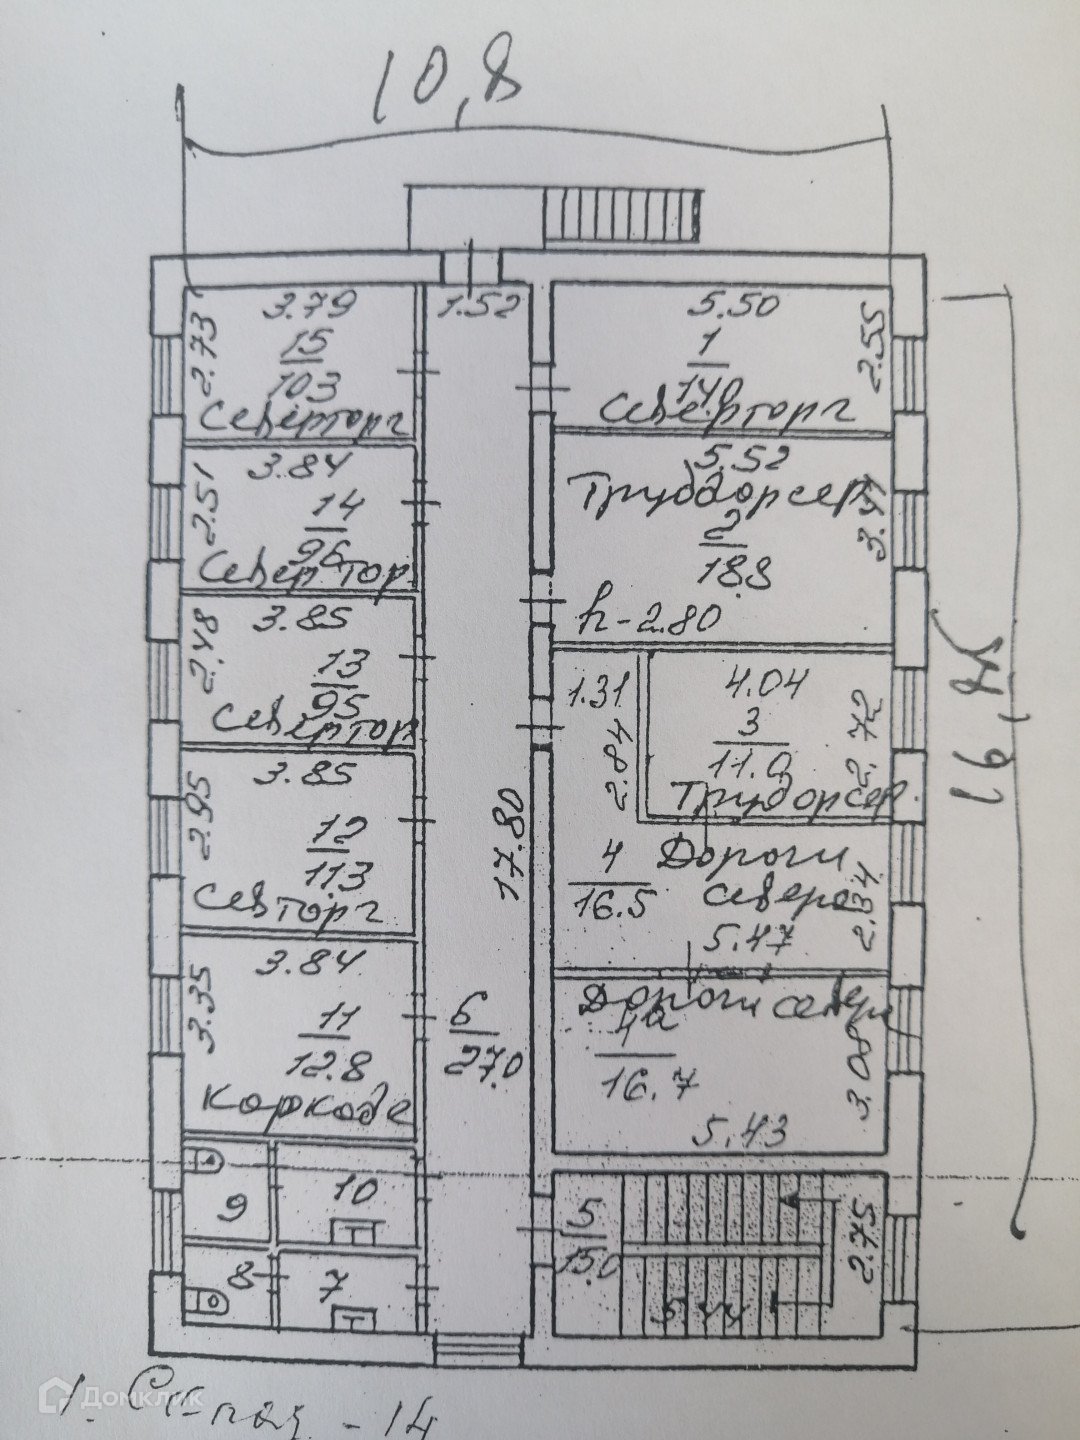 10,8
3.79
1.52
5.50
2.73
15
103
1
14.0
2.55
Северторг
Северторг
3.84
5.52
Труддорсер
2.51
14
96
2
18.8
Север тор
3.85
h-2.80
2.48
13
95
1.31
4.04
3
11.0
2.72
2.84
Севертор
3.85
2.95
12
11.3
17.80
4
16.5
Дороги
севера
2.34
Севторг
5.47
3.84
3.35
11
12.8
6
27.0
Дороги севера
4а
16.7
3.08
5.43
9
10
5
15.0
2.75
8
7
5.44
1.
-14
Домклик